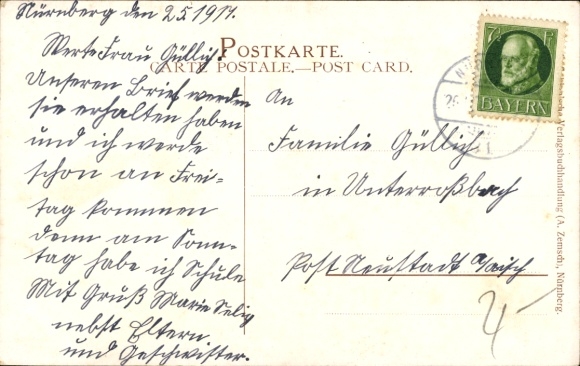 Nürnberg den 25. 1917.
Werte Frau Güllich!
Unseren Brief werden
sie erhalten haben
und ich werde
schon an Frei-
tag kommen
denn am Sonn-
tag habe ich Schule
Mit Gruß Marie Selig
nebst Eltern.
und Geschwister.
POSTKARTE.
CARTE POSTALE.—POST CARD.
An
Familie Güllich
in Unterroßbach
Post Neustadt a/aisch
4
7½ Pf
BAYERN
Verlagsbuchhandlung (A. Zemsch), Nürnberg.